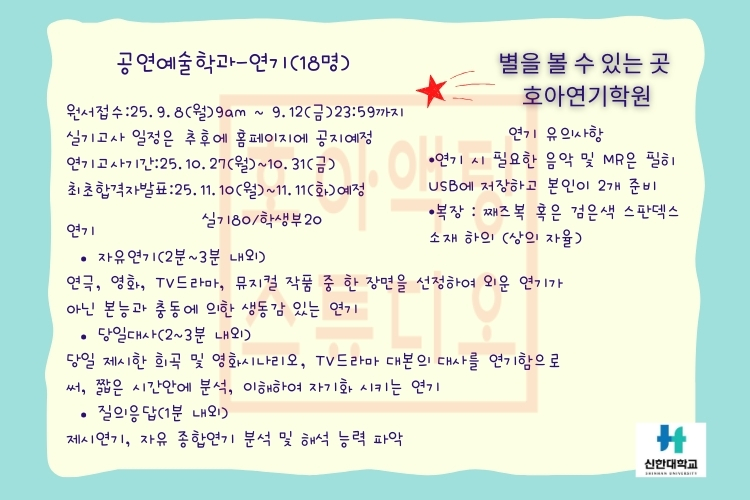 공연예술학과-연기(18명)
별을 볼 수 있는 곳
호아연기학원
원서접수:25.9.8(월)9am ~ 9.12(금)23:59까지
실기고사 일정은 추후에 홈페이지에 공지예정
연기고사기간:25.10.27(월)~10.31(금)
최초합격자발표:25.11.10(월)~11.11(화)예정
실기80/학생부20
연기 유의사항
•연기 시 필요한 음악 및 MR은 필히
USB에 저장하고 본인이 2개 준비
•복장 : 째즈복 혹은 검은색 스판덱스
소재 하의 (상의 자율)
연기
• 자유연기(2분~3분 내외)
연극, 영화, TV드라마, 뮤지컬 작품 중 한 장면을 선정하여 외운 연기가
아닌 본능과 충동에 의한 생동감 있는 연기
• 당일대사(2~3분 내외)
당일 제시한 희곡 및 영화시나리오, TV드라마 대본의 대사를 연기함으로
써, 짧은 시간안에 분석, 이해하여 자기화 시키는 연기
• 질의응답(1분 내외)
제시연기, 자유 종합연기 분석 및 해석 능력 파악
호아액팅
스튜디오
신한대학교
SHINHAN UNIVERSITY